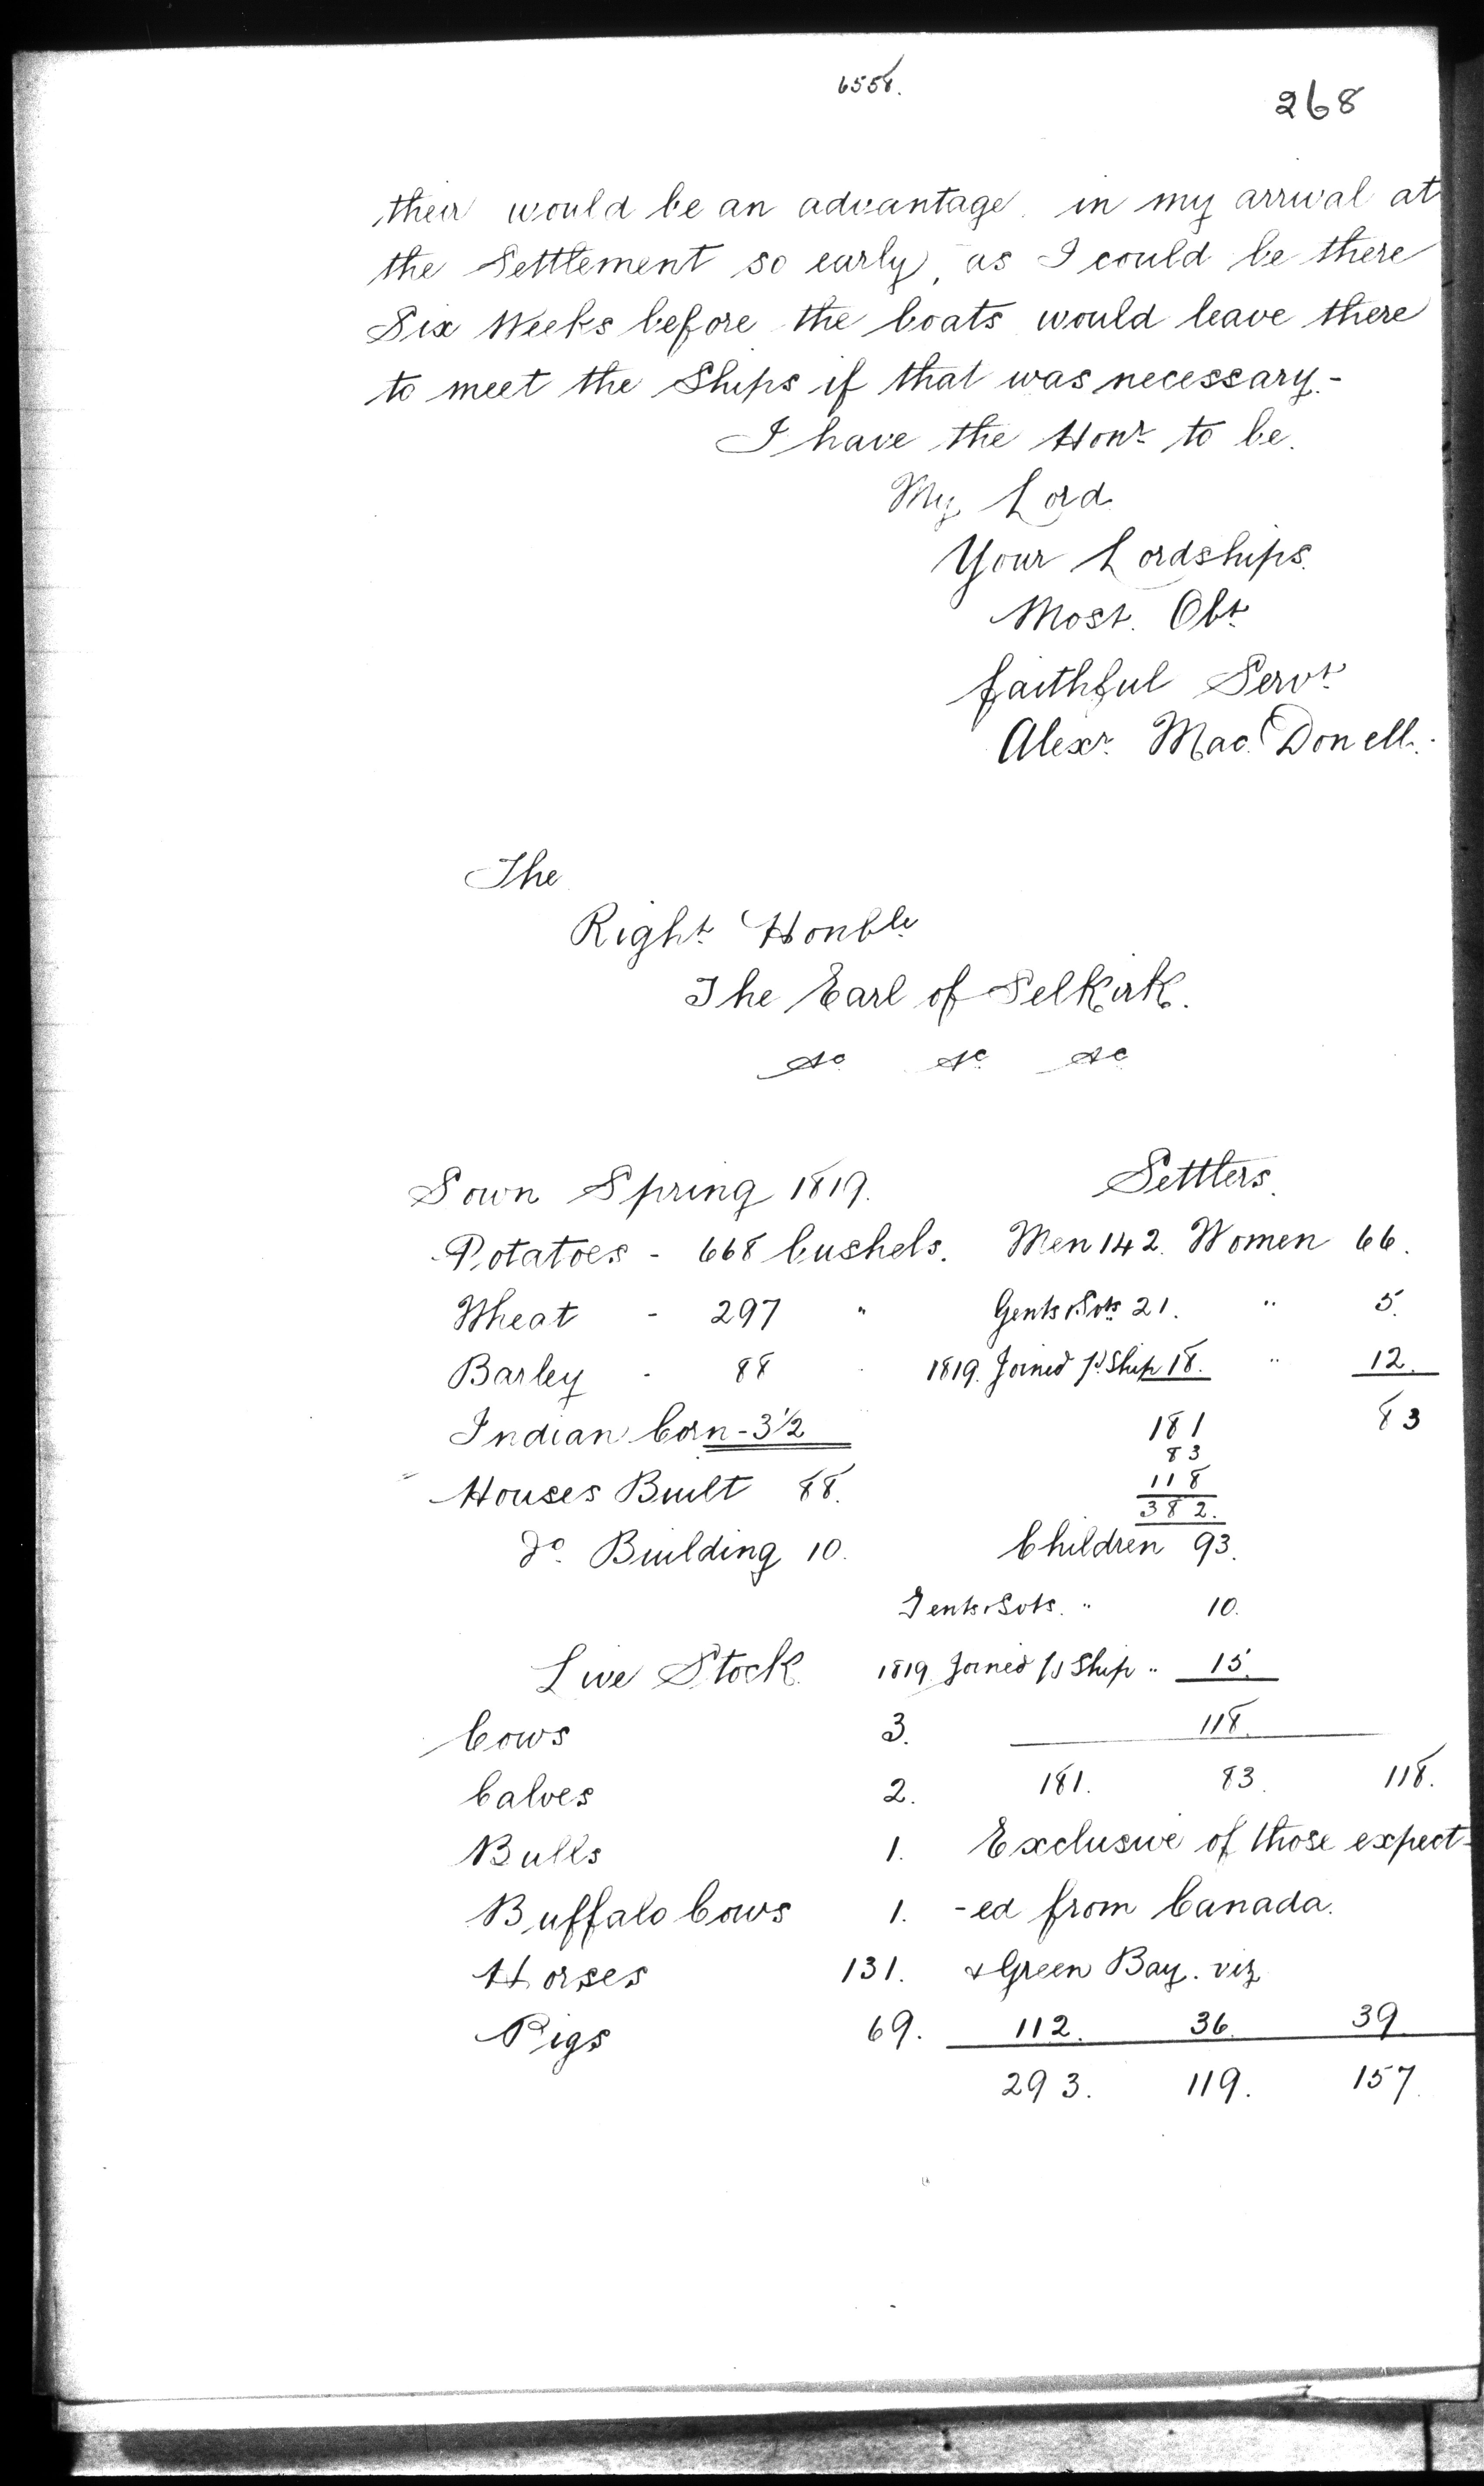 6558.
268
their would be an advantage in my arrival at
the Settlement so early, as I could be there
Six Weeks before the boats would leave there
to meet the Ships if that was necessary. -
I have the Honr. to be.
My Lord
Your Lordships.
Most. Obt.
faithful Servt.
Alexr. Mac. Donell.
The
Right Honble
The Earl of Selkirk.
&c &c &c
Sown Spring 1819.
Potatoes - 668 bushels.
Wheat - 297 "
Barley - 88
Indian Corn - 3 1/2
Houses Built 88.
Do. Building 10.
Settlers.
Men 142. Women 66.
Gents & 21. " 5.
1819. Joined pr. Ship 18. " 12.
181 83
83
118
382.
Children 93.
" 10.
1819 Joined pr Ship " 15.
118.
181. 83. 118.
Exclusive of those expect-
-ed from Canada.
& Green Bay. viz
112. 36. 39
293. 119. 157.
Live Stock
Cows 3.
Calves 2.
Bulls 1.
Buffalo Cows 1.
Horses 131.
Pigs 69.